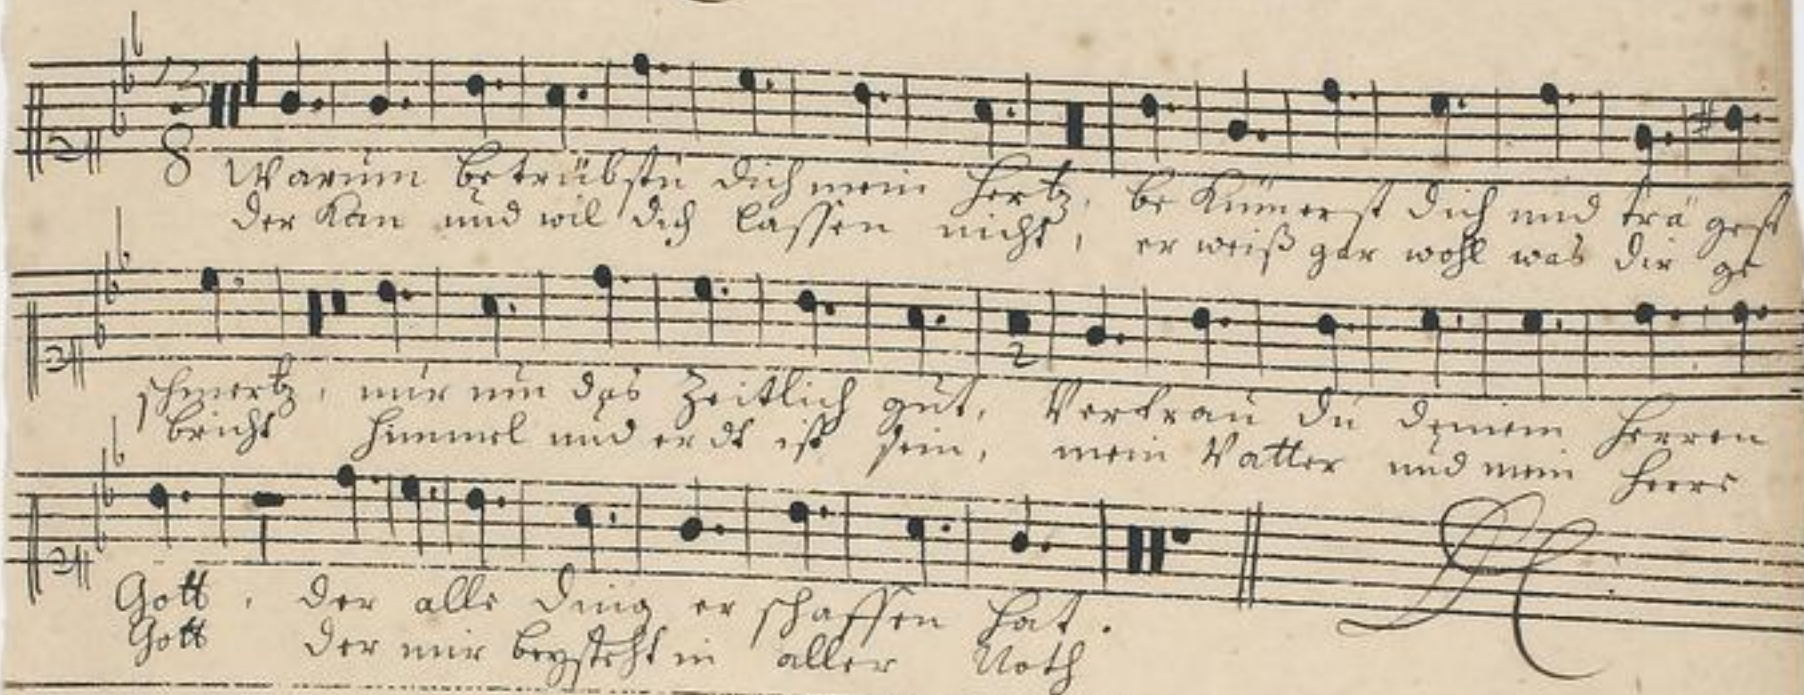 3
8
Warum betrübstu dich mein Hertz, bekümerst dich und trä gest
der kan und wil dich lassen nicht, er weiß gar wohl was dir ge
2
schmertz, nur um das Zeitlich gut, Vertrau du deinem Herren
bricht Himmel und erdt ist sein, mein Vatter und mein Herre
Gott, der alle Ding er schaffen hat.
Gott der mir beysteht in aller Noth